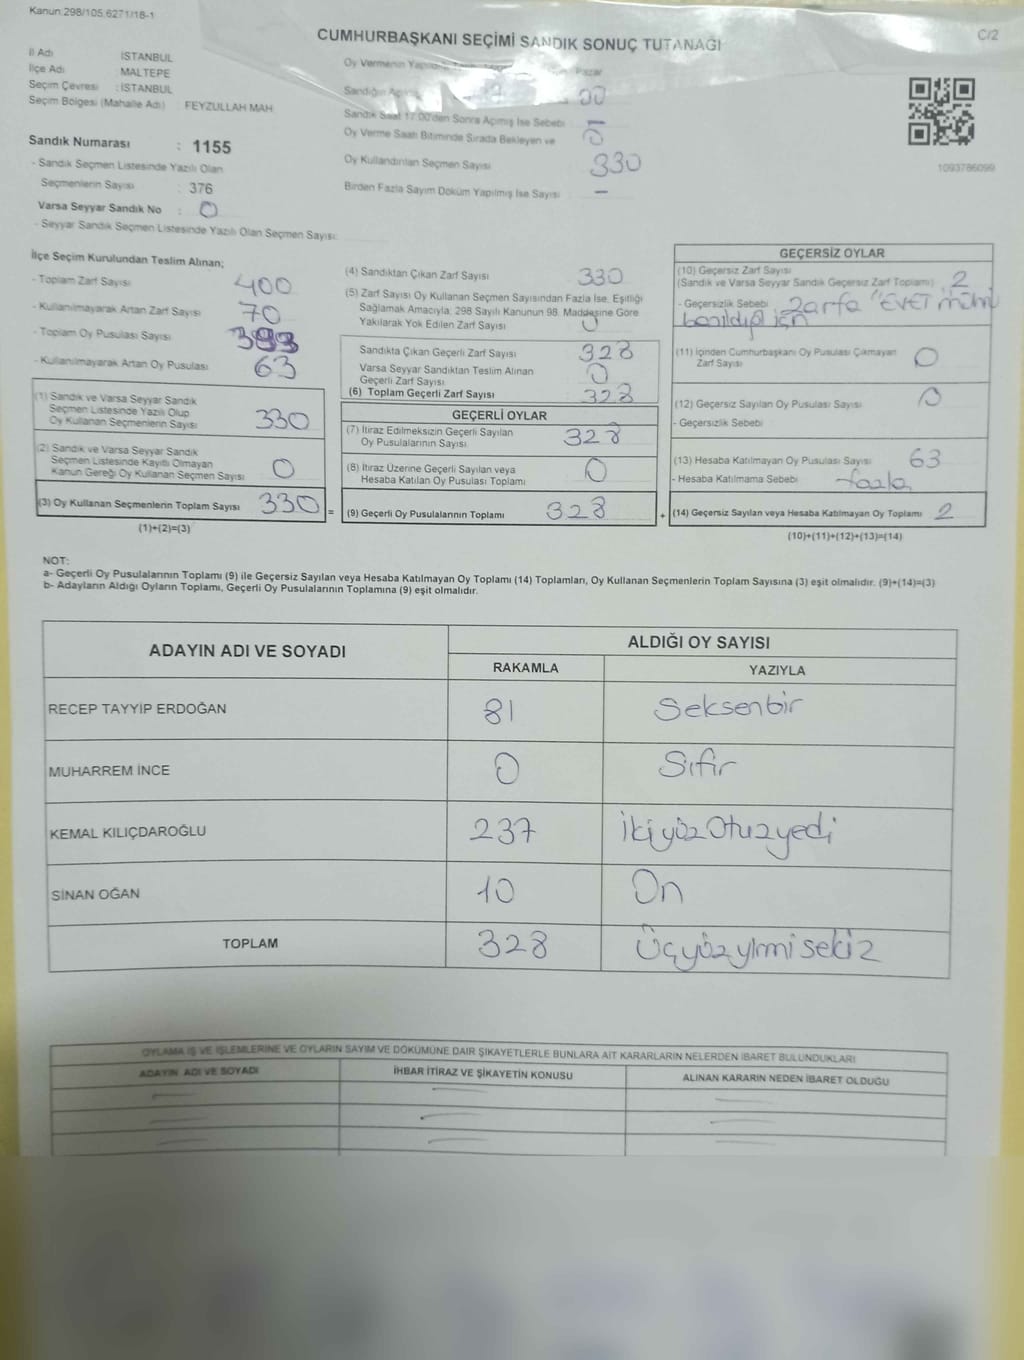 Kanun:298/105,6271/18-1
C/2
CUMHURBAŞKANI SEÇİMİ SANDIK SONUÇ TUTANAĞI
İl Adı İSTANBUL
İlçe Adı MALTEPE
Seçim Çevresi : İSTANBUL
Seçim Bölgesi (Mahalle Adı) : FEYZULLAH MAH
Sandık Numarası : 1155
- Sandık Seçmen Listesinde Yazılı Olan
Seçmenlerin Sayısı : 376
Varsa Seyyar Sandık No : 0
- Seyyar Sandık Seçmen Listesinde Yazılı Olan Seçmen Sayısı:
Oy Vermenin Pazar
Sandığın 00
Sandık Saat 17:00'den Sonra Açılmış İse Sebebi –
Oy Verme Saati Bitiminde Sırada Bekleyen ve 0
Oy Kullandırılan Seçmen Sayısı 330
Birden Fazla Sayım Döküm Yapılmış İse Sayısı –
1093786099
İlçe Seçim Kurulundan Teslim Alınan;
- Toplam Zarf Sayısı 400
- Kullanılmayarak Artan Zarf Sayısı 70
- Toplam Oy Pusulası Sayısı 393
- Kullanılmayarak Artan Oy Pusulası 63
(1) Sandık ve Varsa Seyyar Sandık
Seçmen Listesinde Yazılı Olup
Oy Kullanan Seçmenlerin Sayısı 330
(2) Sandık ve Varsa Seyyar Sandık
Seçmen Listesinde Kayıtlı Olmayan
Kanun Gereği Oy Kullanan Seçmen Sayısı 0
(3) Oy Kullanan Seçmenlerin Toplam Sayısı 330 =
(1)+(2)=(3)
(4) Sandıktan Çıkan Zarf Sayısı 330
(5) Zarf Sayısı Oy Kullanan Seçmen Sayısından Fazla İse, Eşitliği
Sağlamak Amacıyla, 298 Sayılı Kanunun 98. Maddesine Göre
Yakılarak Yok Edilen Zarf Sayısı 0
Sandıkta Çıkan Geçerli Zarf Sayısı 328
Varsa Seyyar Sandıktan Teslim Alınan
Geçerli Zarf Sayısı 0
(6) Toplam Geçerli Zarf Sayısı 328
GEÇERLİ OYLAR
(7) İtiraz Edilmeksizin Geçerli Sayılan
Oy Pusulalarının Sayısı 328
(8) İtiraz Üzerine Geçerli Sayılan veya
Hesaba Katılan Oy Pusulası Toplamı 0
(9) Geçerli Oy Pusulalarının Toplamı 328 +
GEÇERSİZ OYLAR
(10) Geçersiz Zarf Sayısı
(Sandık ve Varsa Seyyar Sandık Geçersiz Zarf Toplamı) 2
- Geçersizlik Sebebi Zarfa "EVET mührü
basıldığı için
(11) İçinden Cumhurbaşkanı Oy Pusulası Çıkmayan
Zarf Sayısı 0
(12) Geçersiz Sayılan Oy Pusulası Sayısı 0
- Geçersizlik Sebebi
(13) Hesaba Katılmayan Oy Pusulası Sayısı 63
- Hesaba Katılmama Sebebi fazla
(14) Geçersiz Sayılan veya Hesaba Katılmayan Oy Toplamı 2
(10)+(11)+(12)+(13)=(14)
NOT:
a- Geçerli Oy Pusulalarının Toplamı (9) ile Geçersiz Sayılan veya Hesaba Katılmayan Oy Toplamı (14) Toplamları, Oy Kullanan Seçmenlerin Toplam Sayısına (3) eşit olmalıdır. (9)+(14)=(3)
b- Adayların Aldığı Oyların Toplamı, Geçerli Oy Pusulalarının Toplamına (9) eşit olmalıdır.
ADAYIN ADI VE SOYADI ALDIĞI OY SAYISI
RAKAMLA YAZIYLA
RECEP TAYYİP ERDOĞAN 81 Seksenbir
MUHARREM İNCE 0 Sıfır
KEMAL KILIÇDAROĞLU 237 İkiyüzOtuzyedi
SİNAN OĞAN 10 On
TOPLAM 328 Üçyüzyirmisekiz
OYLAMA İŞ VE İŞLEMLERİNE VE OYLARIN SAYIM VE DÖKÜMÜNE DAİR ŞİKAYETLERLE BUNLARA AİT KARARLARIN NELERDEN İBARET BULUNDUKLARI
ADAYIN ADI VE SOYADI İHBAR İTİRAZ VE ŞİKAYETİN KONUSU ALINAN KARARIN NEDEN İBARET OLDUĞU